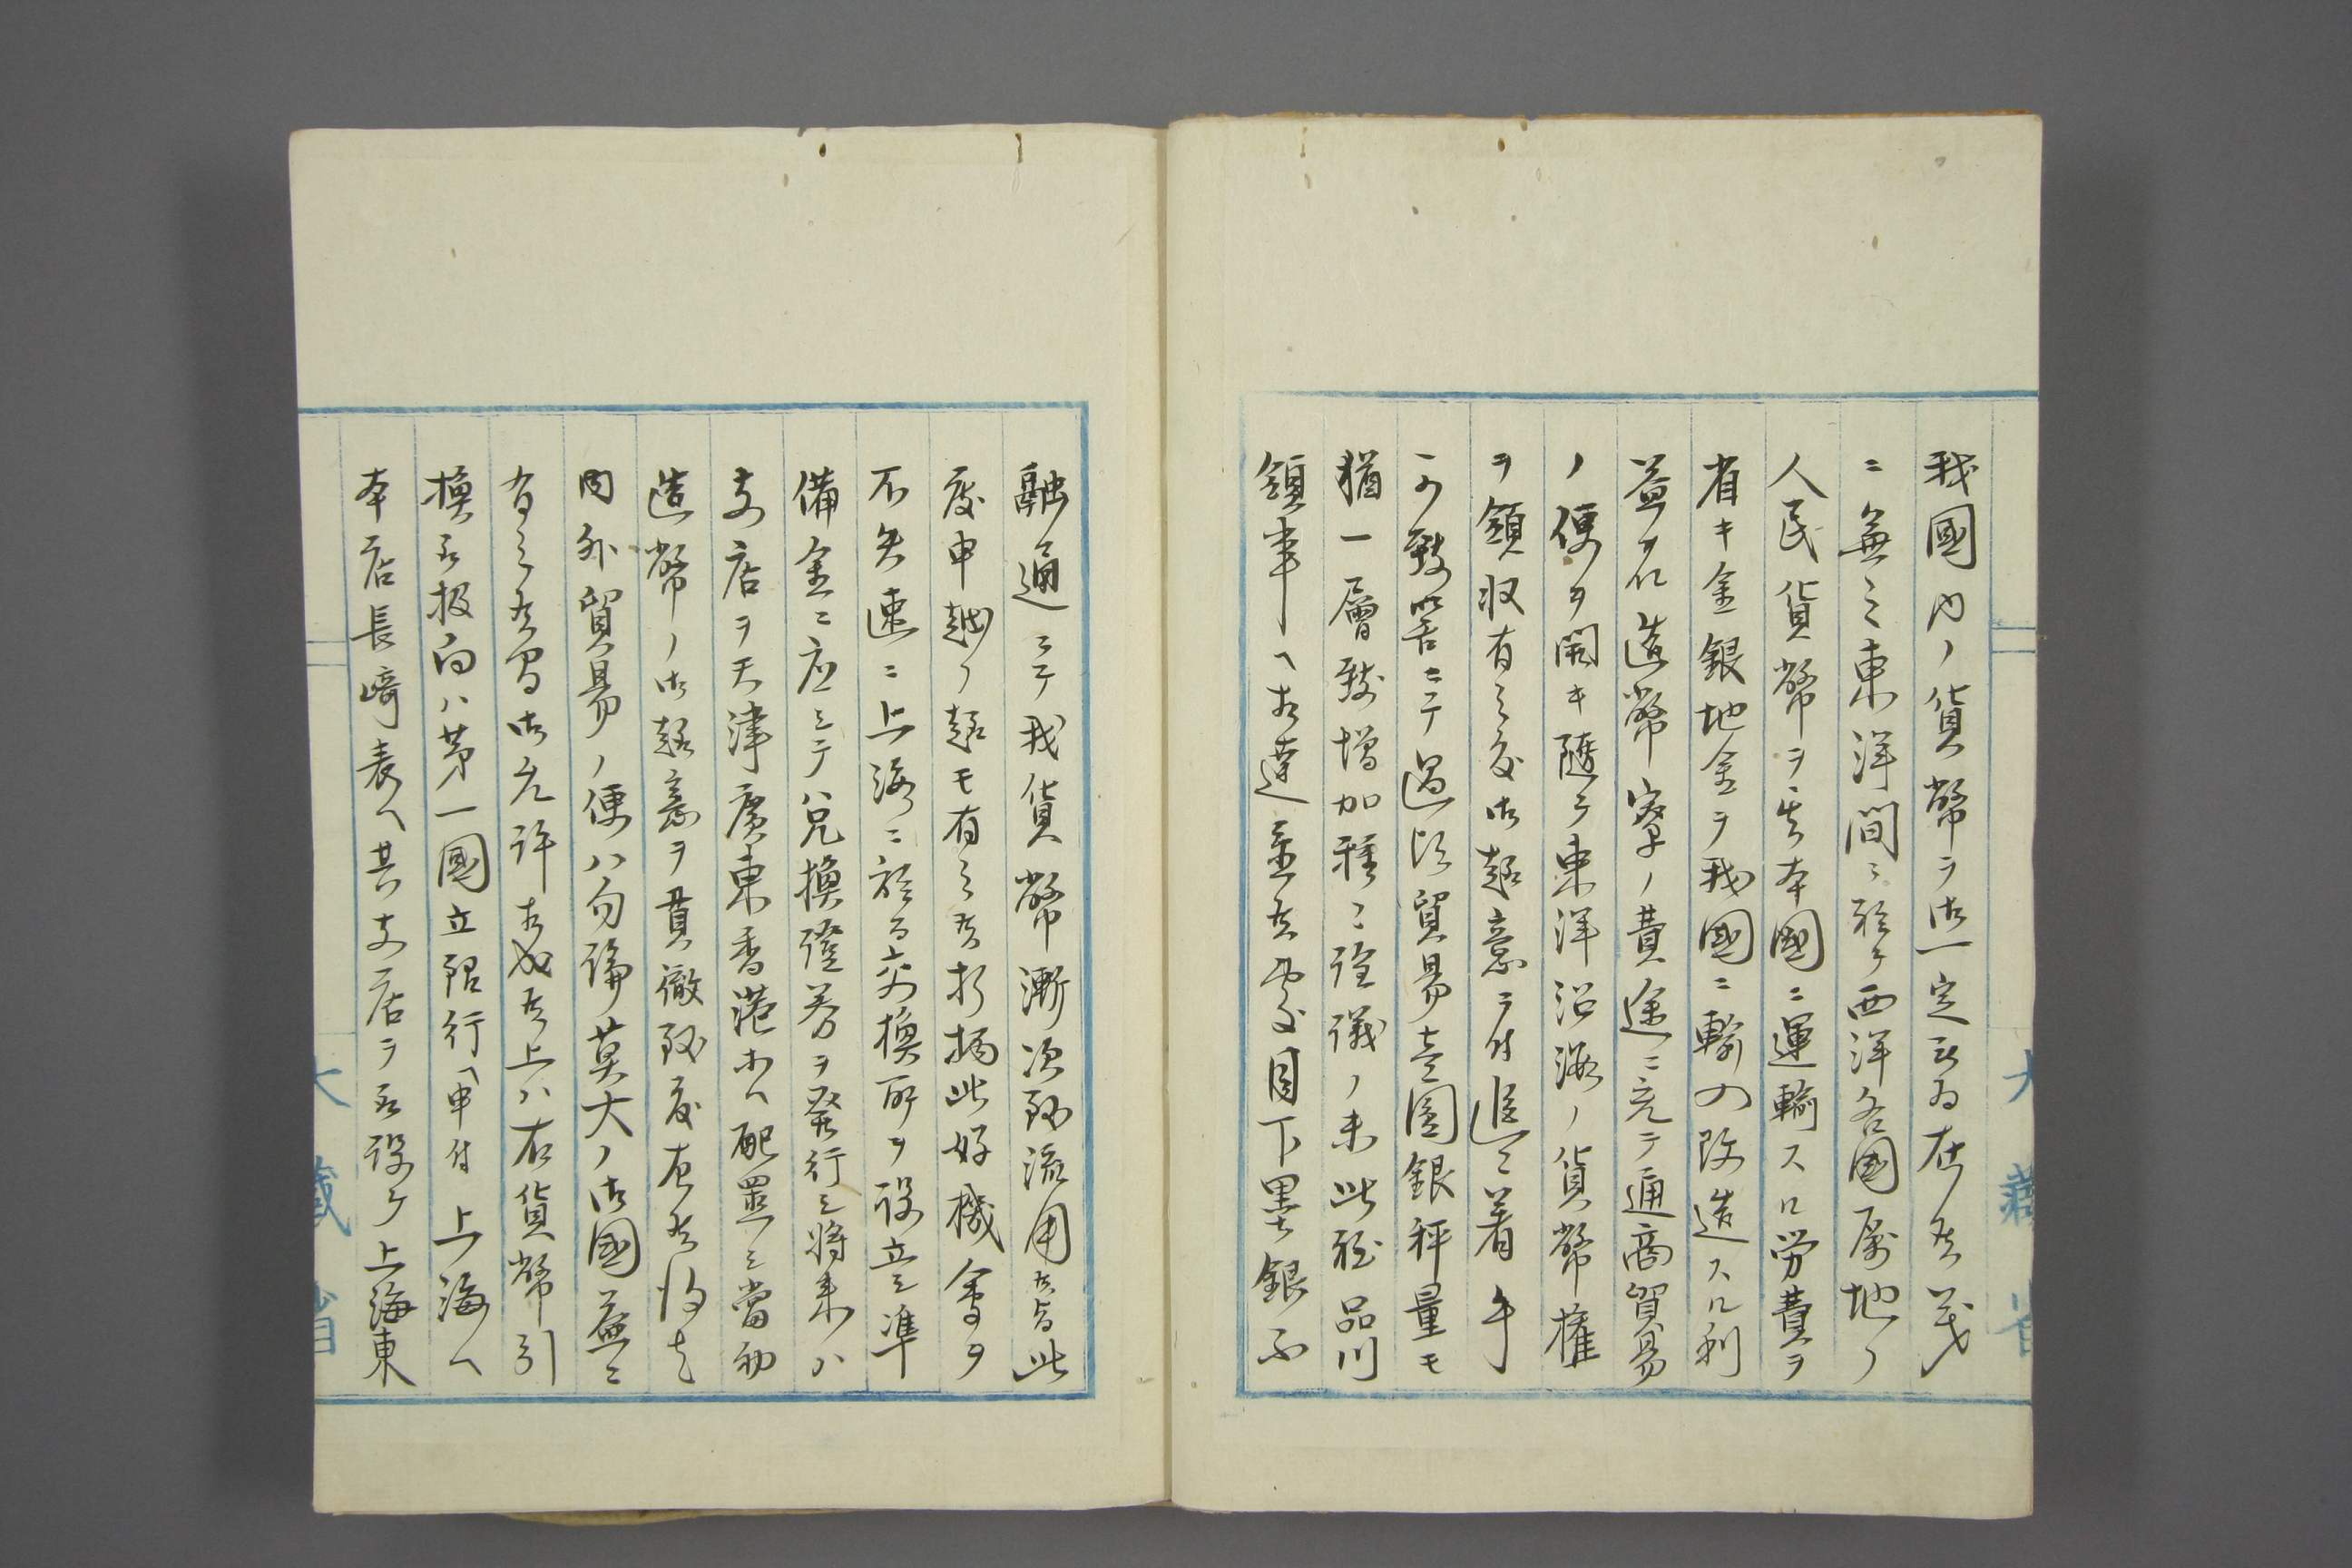 我國内ノ貨幣ヲ御一定被為在候義
ニ無之東洋間ニ於テ西洋各國属地ノ
人民貨幣ヲ其本國ニ運輸スル労費ヲ
省キ金銀地金ヲ我國ニ輸入改造スル利
益ヲ以造幣寮ノ費途ニ充テ通商貿易
ノ便ヲ開キ随テ東洋沿海ノ貨幣権
ヲ領収有之度御趣意ニ付追々着手
可致筈ニテ過ル頃貿易壹圓銀秤量モ
猶一層致増加種々詮議ノ末此程品川
領事ヘ相達置候処目下墨銀不
融通ニテ我貨幣漸次致流用候旨此
度申越ノ趣モ有之候折柄此好機會ヲ
不失速ニ上海ニ於テ交換所ヲ設立シ準
備金ニ応シテハ兌換證券ヲ発行シ将来ハ
支店ヲ天津廣東香港等ヘ配置シ當初
造幣ノ御趣意ヲ貫徹致度左候得者
内外貿易ノ便ハ勿論莫大ノ御國益ニ
有之候間御允許相成候上ハ右貨幣引
換取扱向ハ第一國立銀行ヘ申付上海ヘ
本店長崎表ヘ其支店ヲ取設ケ上海東
大藏省